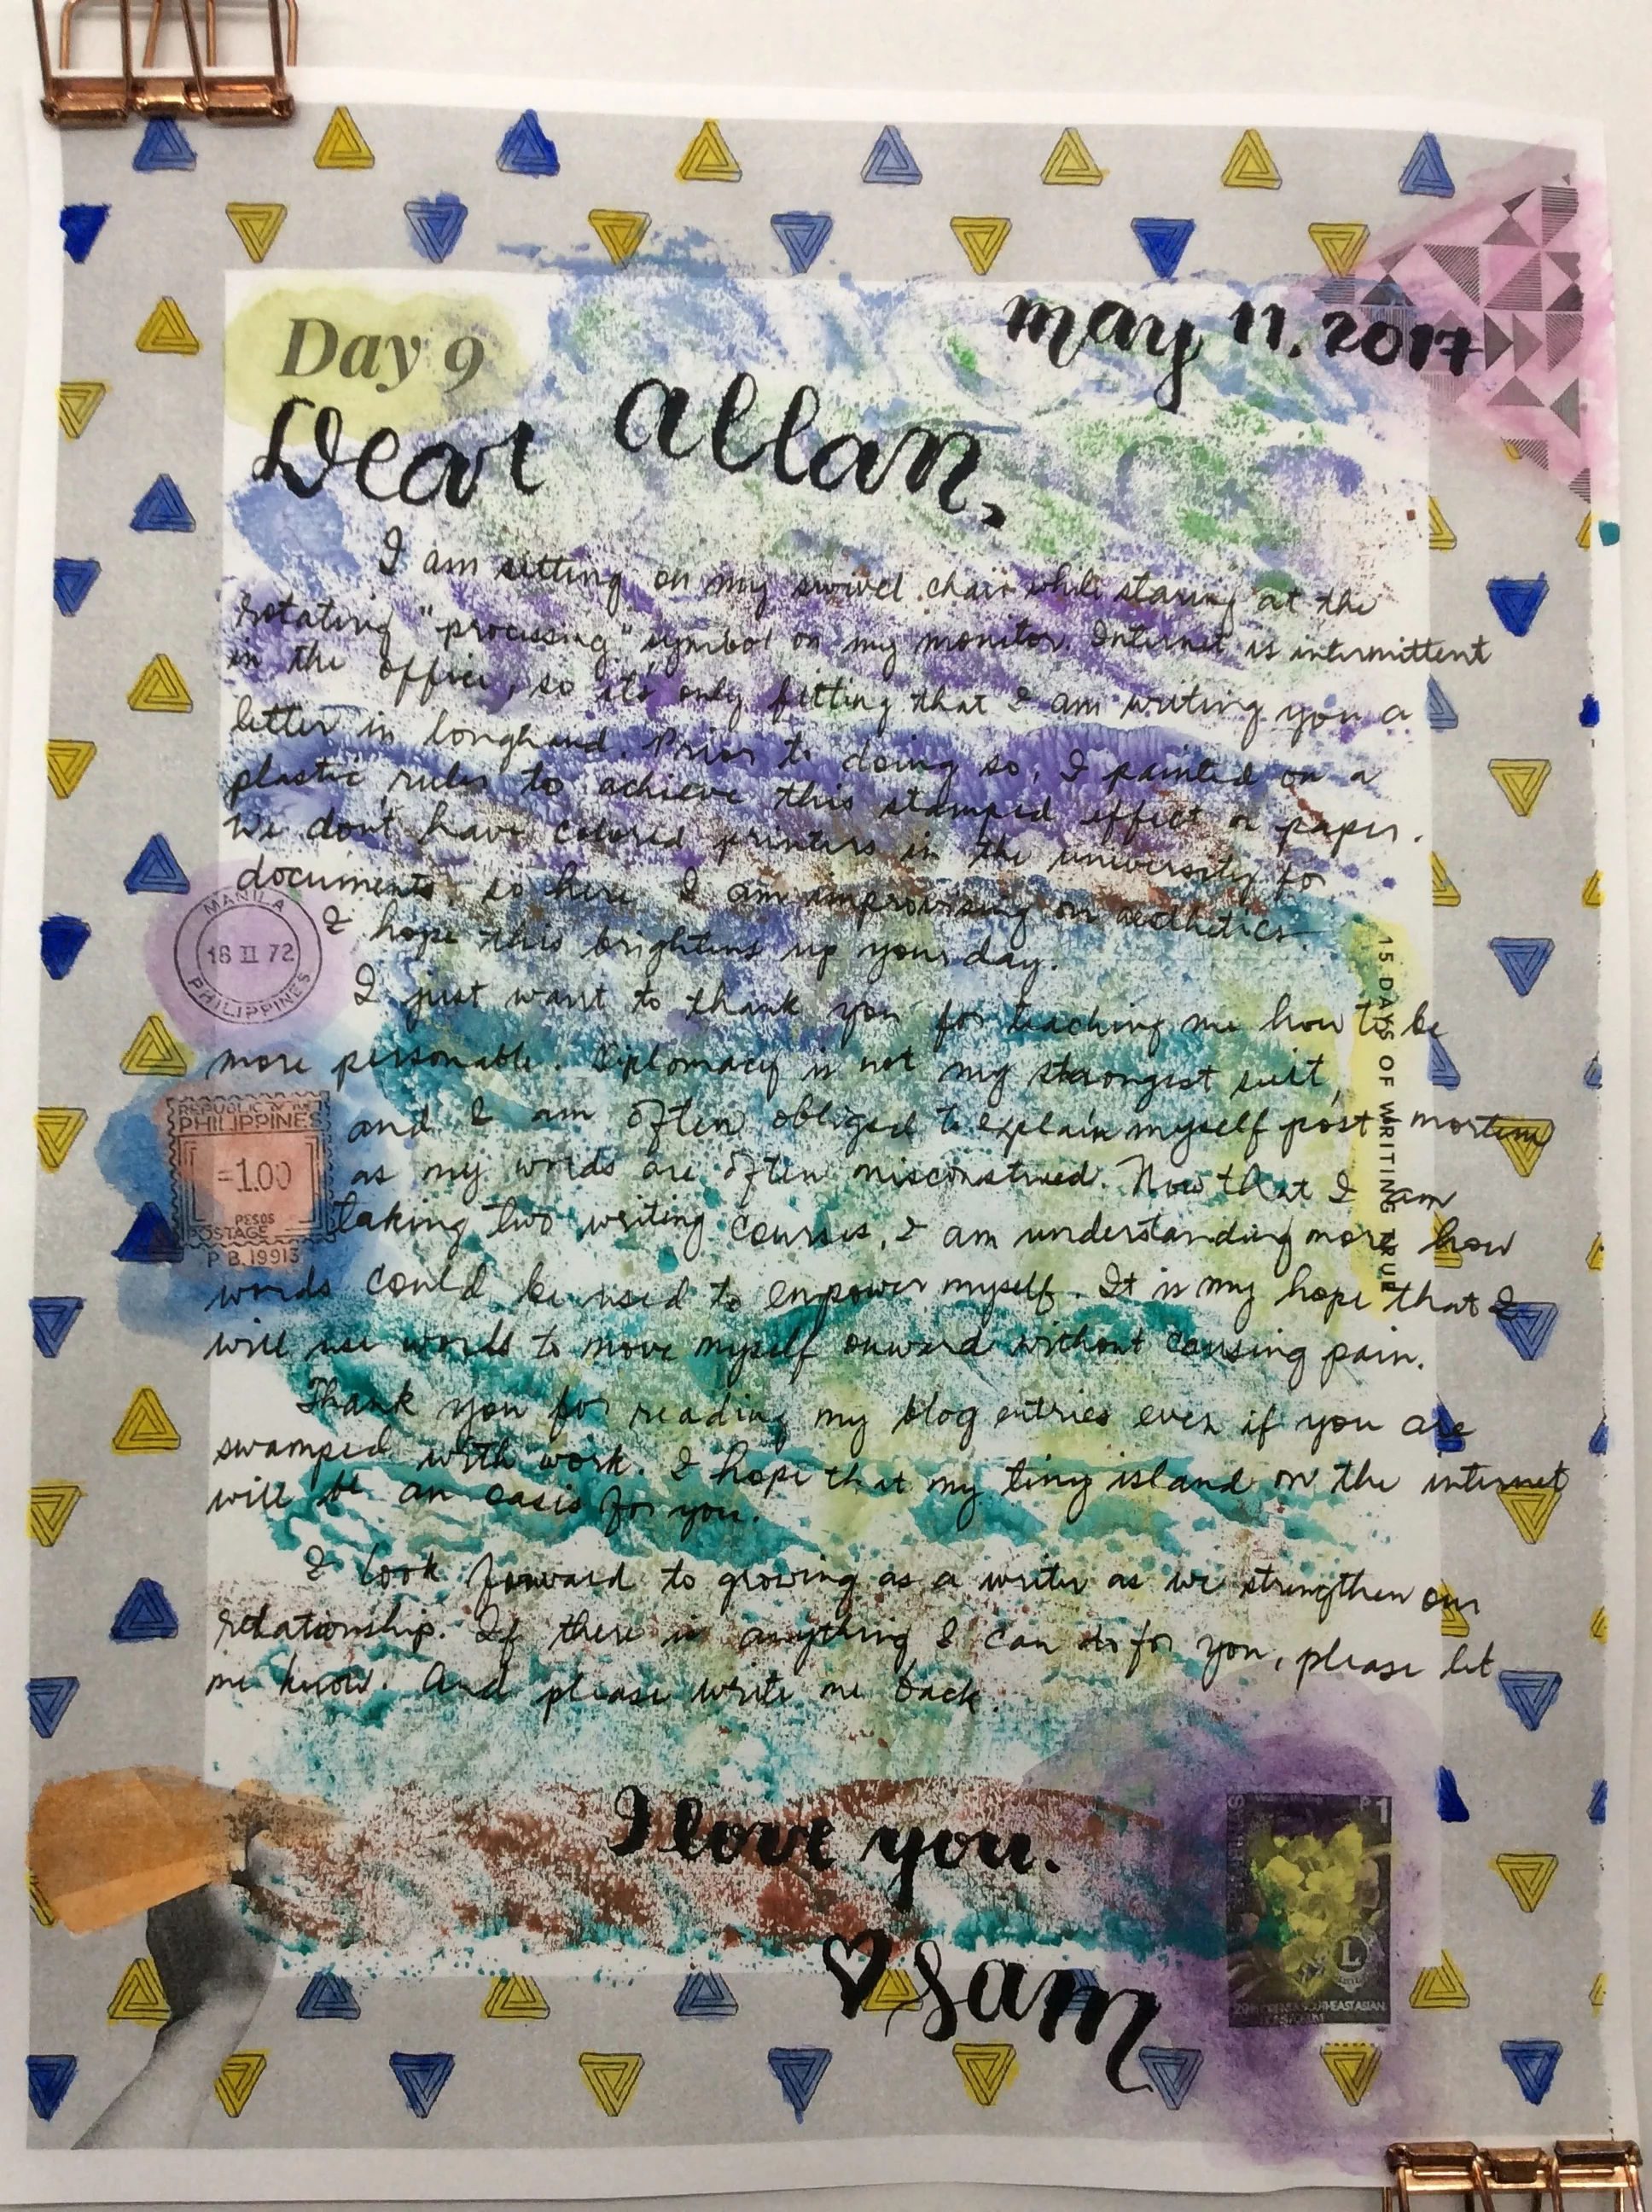 may 11, 2017
Day 9
Dear Allan,
I am sitting on my swivel chair while staring at the
rotating "processing" symbol on my monitor. Internet is intermittent
in the office, so it's only fitting that I am writing you a
letter in longhand. Prior to doing so, I painted on a
plastic ruler to achieve this stamped effect on paper.
We don't have colored printers in the university for
documents, so here I am improvising on aesthetics.
I hope this brightens up your day.
I just want to thank you for teaching me how to be
more personable. Diplomacy is not my strongest suit,
and I am often obliged to explain myself post-mortem
as my words are often misconstrued. Now that I am
taking two writing courses, I am understanding more how
words could be used to empower myself. It is my hope that I
will use words to move myself onward without causing pain.
Thank you for reading my blog entries even if you are
swamped with work. I hope that my tiny island on the internet
will be an oasis for you.
I look forward to growing as a writer as we strengthen our
relationship. If there is anything I can do for you, please let
me know. And please write me back.
I love you.
♡ Sam
MANILA
18 II 72
PHILIPPINES
REPUBLIC
PHILIPPINES
=1.00
PESOS
POSTAGE
P.B. 19913
15 DAYS OF WRITING TRUE
P1
L
SOUTHEAST ASIAN